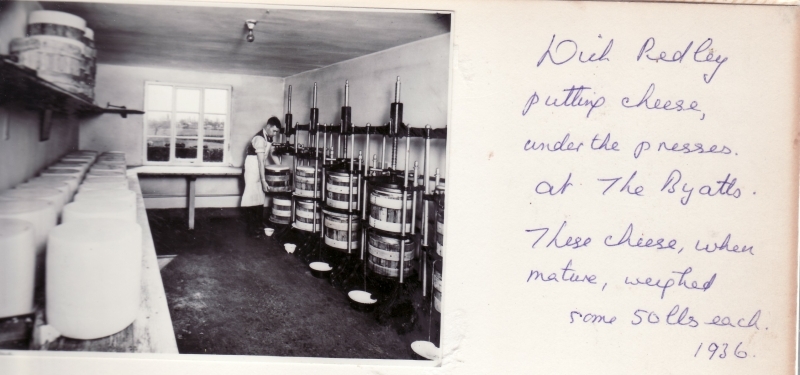 Dick Redley
putting cheese,
under the presses.
at The Byatts.
These cheese, when
mature, weighed
some 50 lbs each.
1936.